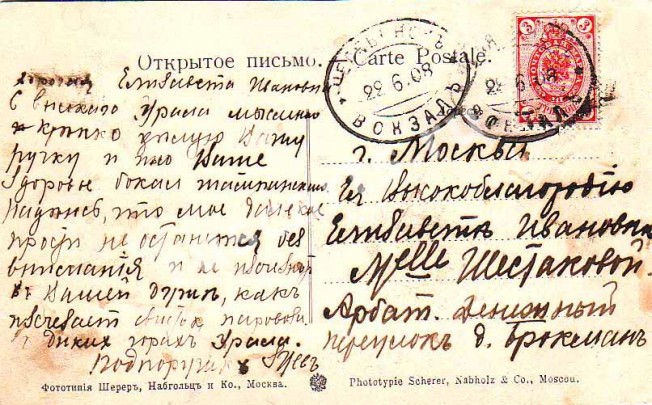 Открытое письмо. Carte Postale.
ЧЕЛЯБИНСКЪ
22 6.08
ВОКЗАЛЪ
3
3
22 6 08
ВОКЗАЛЪ
Елизавета Ивановна
С высокаго Урала мысленно
крепко целую Вашу
ручку и пью Ваше
Здоровье бокал шампанскаго
Надеюсь, что мое далекое
прости не останется без
внимания и не исчезнет
в Вашей душе, как
исчезает свисток паровоза
в диких горах Урала.
Подпоручик
г. Москва
Ея Высокоблагородію
Елизаветѣ Ивановнѣ
Melle Шестаковой.
Арбат. Денежный
переулок д. Брокманъ
Фототипія Шереръ, Набгольцъ и Ко., Москва.
Phototypie Scherer, Nabholz & Co., Moscou.